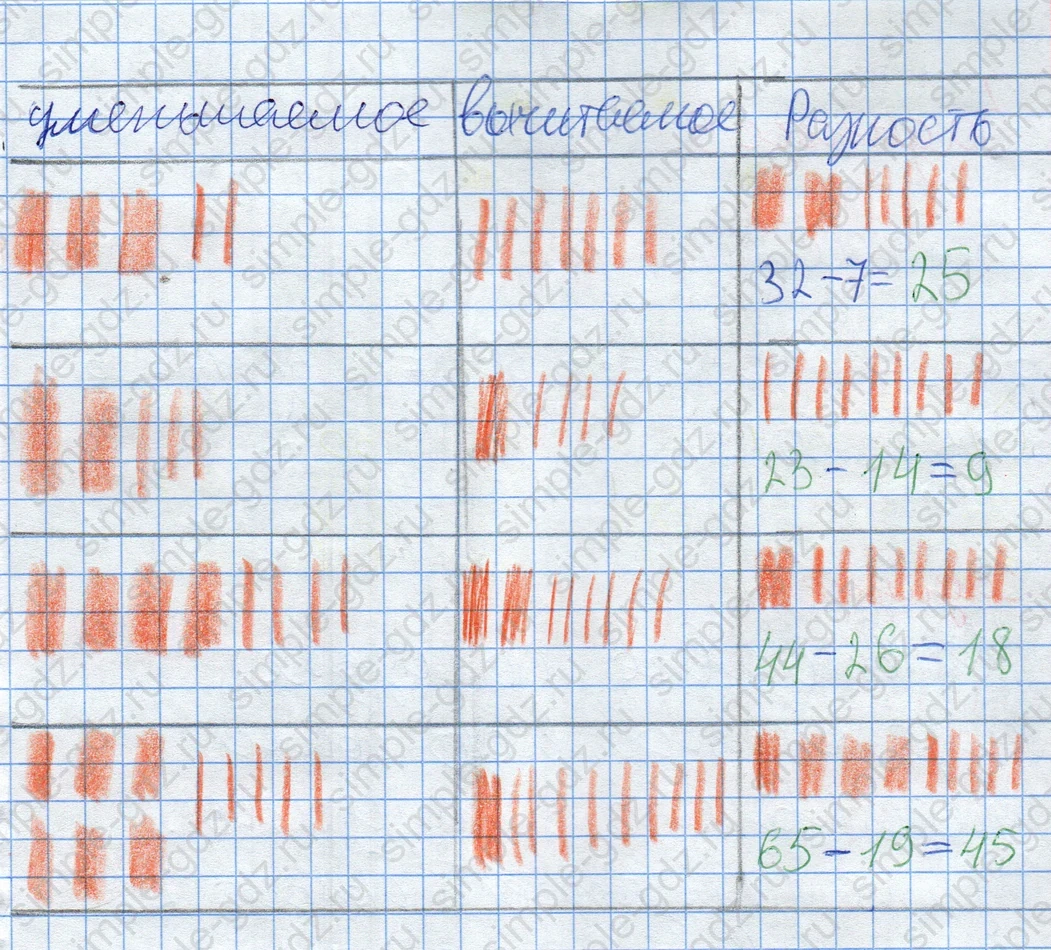 уменьшаемое вычитаемое Разность
32-7=25
23-14=9
44-26=18
65-19=45
simple-gdz.ru